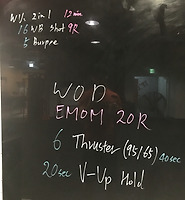 W/U 2 in 1 12min
16 WB shot 9R
5 Burpee
WOD
EMOM 20R
6 Thruster (95/65) 40sec
20sec V-Up Hold